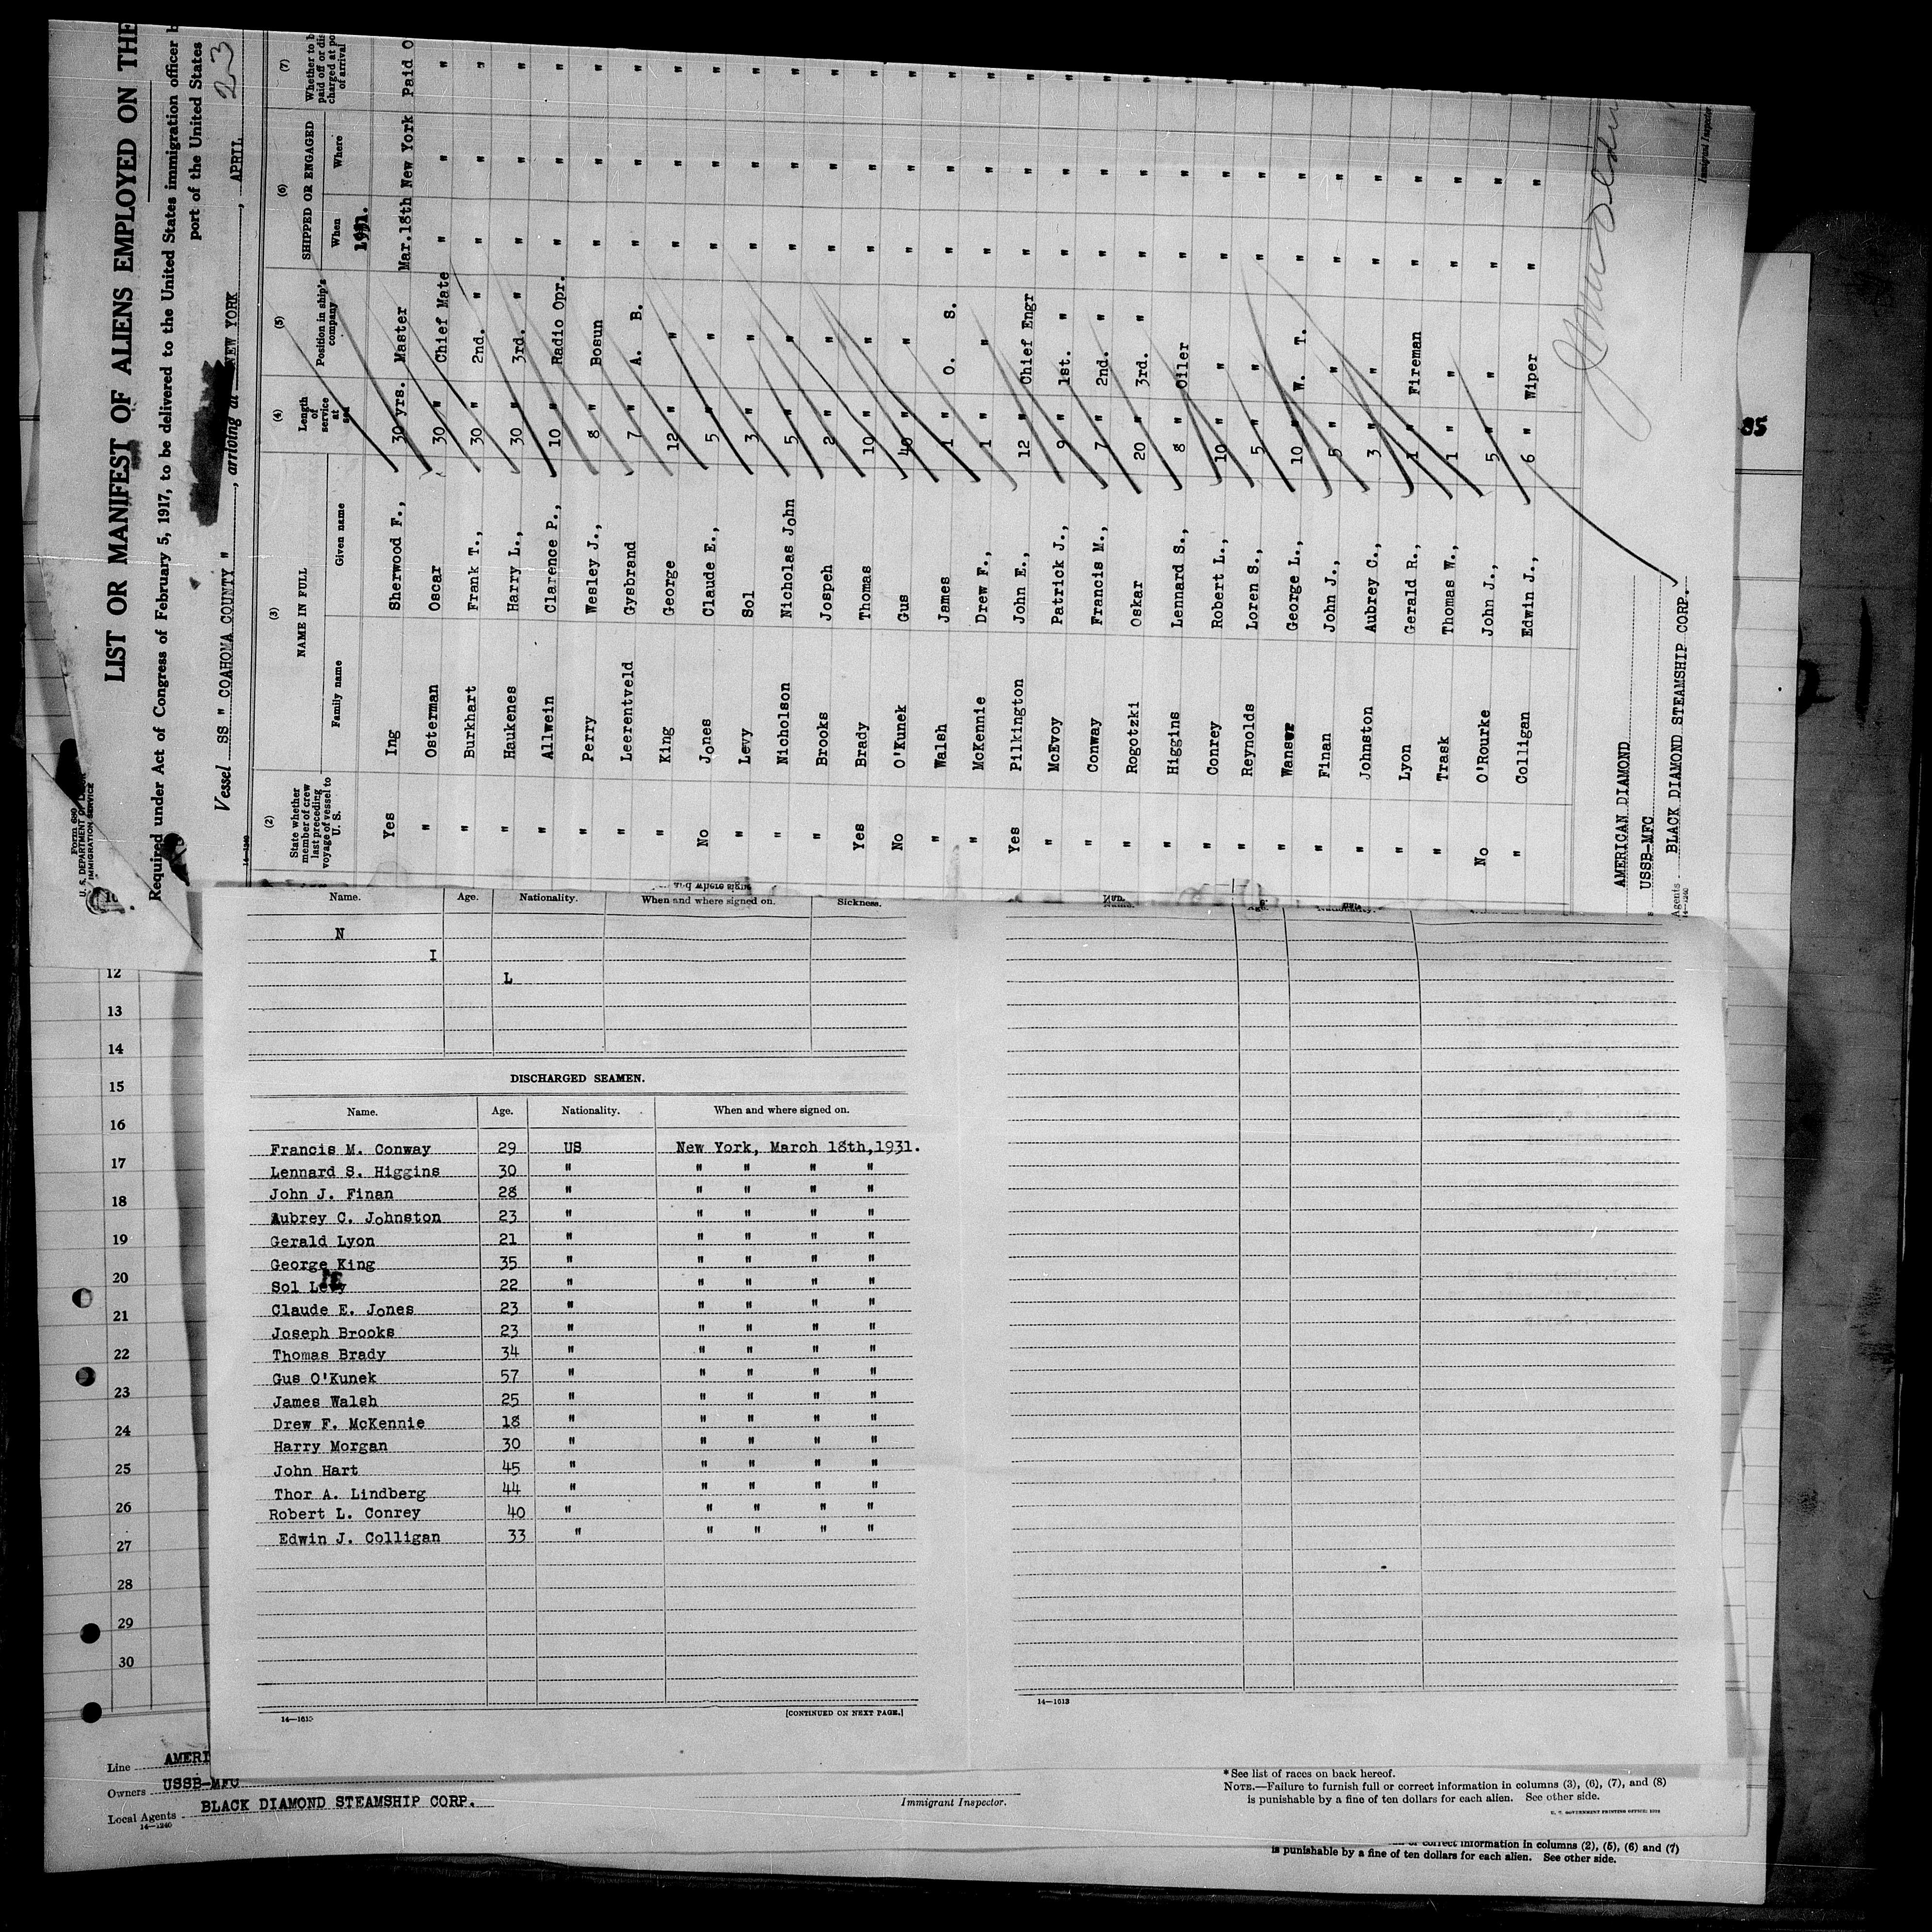 LIST OR MANIFEST OF ALIENS EMPLOYED ON THE
Form 680
U. S. DEPARTMENT OF LABOR
IMMIGRATION SERVICE
Required under Act of Congress of February 5, 1917, to be delivered to the United States immigration officer
port of the United States
Vessel SS " COAHOMA COUNTY " , arriving at NEW YORK , APRIL 23
14—1240
(2) (3) (4) (5) (6) (7)
State whether member of crew last preceding voyage of vessel to U. S.
NAME IN FULL
Family name Given name
Length of service at sea
Position in ship's company
SHIPPED OR ENGAGED
When Where
1931.
Whether to be paid off or discharged at port of arrival
Yes Ing Sherwood F., 30 yrs. Master Mar.18th New York Paid O
" Osterman Oscar 30 " Chief Mate " " "
" Burkhart Frank T., 30 " 2nd. " " " "
" Haukenes Harry L., 30 " 3rd. " " " "
" Allwein Clarence P., 10 " Radio Opr. " " "
" Perry Wesley J., 8 " Bosun " " "
" Leerentveld Gysbrand 7 " A. B. " " "
" King George 12 " " " " "
No Jones Claude E., 5 " " " " "
" Levy Sol 3 " " " " "
" Nicholson Nicholas John 5 " " " " "
" Brooks Jospeh 2 " " " " "
Yes Brady Thomas 10 " " " " "
No O'Kunek Gus 40 " " " " "
" Walsh James 1 " O. S. " " "
" McKennie Drew F., 1 " " " " "
Yes Pilkington John E., 12 " Chief Engr " " "
" McEvoy Patrick J., 9 " 1st. " " " "
" Conway Francis M., 7 " 2nd. " " " "
" Rogotzki Oskar 20 " 3rd. " " " "
" Higgins Lennard S., 8 " Oiler " " "
" Conrey Robert L., 10 " " " " "
" Reynolds Loren S., 5 " " " " "
" Wanser George L., 10 " W. T. " " "
" Finan John J., 5 " " " " "
" Johnston Aubrey C., 3 " " " " "
" Lyon Gerald R., 1 " Fireman " " "
" Trask Thomas W., 1 " " " " "
No O'Rourke John J., 5 " " " " "
" Colligan Edwin J., 6 " Wiper " " "
AMERICAN DIAMOND
USSB-MFC
Agents BLACK DIAMOND STEAMSHIP CORP.
14—1240
Immigrant Inspector
85
Name. Age. Nationality. When and where signed on. Sickness.
N
I
L
DISCHARGED SEAMEN.
Name. Age. Nationality. When and where signed on.
Francis M. Conway 29 US New York, March 18th,1931.
Lennard S. Higgins 30 " " " " "
John J. Finan 28 " " " " "
Aubrey C. Johnston 23 " " " " "
Gerald Lyon 21 " " " " "
George King 35 " " " " "
Sol Levy 22 " " " " "
Claude E. Jones 23 " " " " "
Joseph Brooks 23 " " " " "
Thomas Brady 34 " " " " "
Gus O'Kunek 57 " " " " "
James Walsh 25 " " " " "
Drew F. McKennie 18 " " " " "
Harry Morgan 30 " " " " "
John Hart 45 " " " " "
Thor A. Lindberg 44 " " " " "
Robert L. Conrey 40 " " " " "
Edwin J. Colligan 33 " " " " "
14—1613
[CONTINUED ON NEXT PAGE.]
14—1613
12
13
14
15
16
17
18
19
20
21
22
23
24
25
26
27
28
29
30
Line AMERI
Owners USSB-MFC
Local Agents BLACK DIAMOND STEAMSHIP CORP.
14—1240
Immigrant Inspector.
* See list of races on back hereof.
NOTE.—Failure to furnish full or correct information in columns (3), (6), (7), and (8)
is punishable by a fine of ten dollars for each alien. See other side.
U. S. GOVERNMENT PRINTING OFFICE:
or correct information in columns (2), (5), (6) and (7)
is punishable by a fine of ten dollars for each alien. See other side.